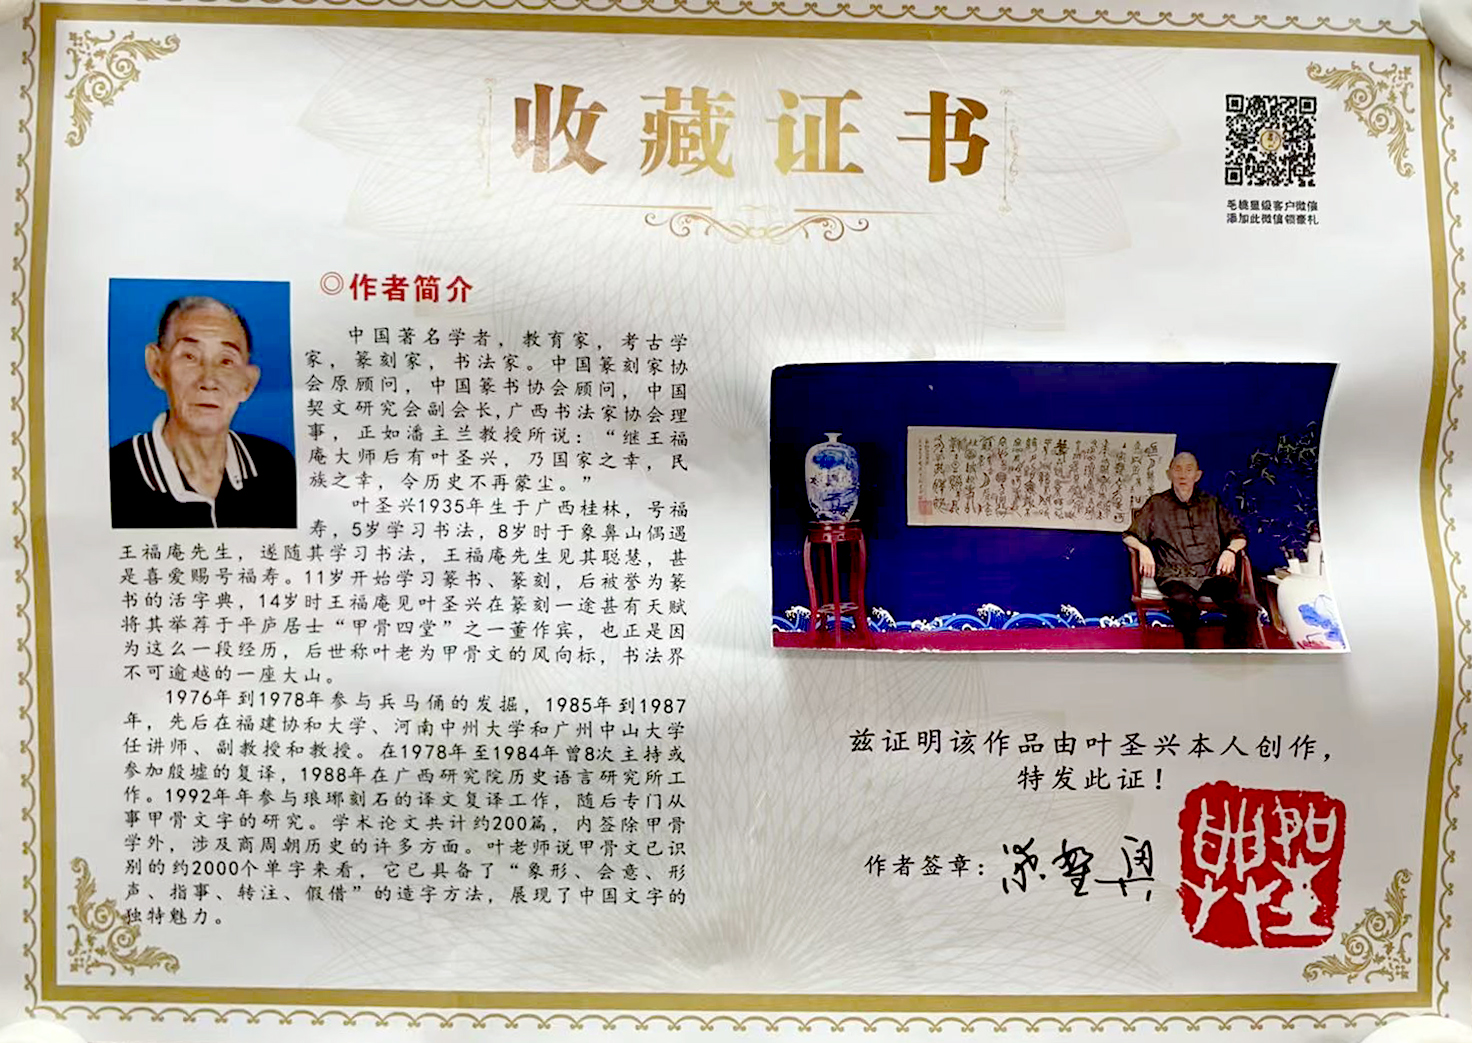 收藏证书
毛桃星级客户微信
添加此微信领豪礼
◎作者简介
中国著名学者，教育家，考古学
家，篆刻家，书法家。中国篆刻家协
会原顾问，中国篆书协会顾问，中国
契文研究会副会长,广西书法家协会理
事，正如潘主兰教授所说：“继王福
庵大师后有叶圣兴，乃国家之幸，民
族之幸，令历史不再蒙尘。”
叶圣兴1935年生于广西桂林，号福
寿，5岁学习书法，8岁时于象鼻山偶遇
王福庵先生，遂随其学习书法，王福庵先生见其聪慧，甚
是喜爱赐号福寿。11岁开始学习篆书、篆刻，后被誉为篆
书的活字典，14岁时王福庵见叶圣兴在篆刻一途甚有天赋
将其举荐于平庐居士“甲骨四堂”之一董作宾，也正是因
为这么一段经历，后世称叶老为甲骨文的风向标，书法界
不可逾越的一座大山。
1976年到1978年参与兵马俑的发掘，1985年到1987
年，先后在福建协和大学、河南中州大学和广州中山大学
任讲师、副教授和教授。在1978年至1984年曾8次主持或
参加殷墟的复译，1988年在广西研究院历史语言研究所工
作。1992年年参与琅琊刻石的译文复译工作，随后专门从
事甲骨文字的研究。学术论文共计约200篇，内签除甲骨
学外，涉及商周朝历史的许多方面。叶老师说甲骨文已识
别的约2000个单字来看，它已具备了“象形、会意、形
声、指事、转注、假借”的造字方法，展现了中国文字的
独特魅力。
兹证明该作品由叶圣兴本人创作，
特发此证！
作者签章：